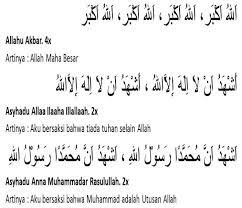 اَللهُ اَكْبَر، اَللهُ اَكْبَر، اَللهُ اَكْبَر
Allahu Akbar. 4x
Artinya : Allah Maha Besar
اَشْهَدُ اَنْ لاَ اِلٰهَ اِلاَّاللهُ ، اَشْهَدُ اَنْ لاَ اِلٰهَ اِلاَّاللهُ
Asyhadu Allaa Ilaaha Illallaah. 2x
Artinya : Aku bersaksi bahwa tiada tuhan selain Allah
اَشْهَدُ اَنَّ مُحَمَّدًا رَسُوْلُ اللهِ ، اَشْهَدُ اَنَّ مُحَمَّدًا رَسُوْلُ اللهِ
Asyhadu Anna Muhammadar Rasulullah. 2x
Artinya : Aku bersaksi bahwa Muhammad adalah Utusan Allah